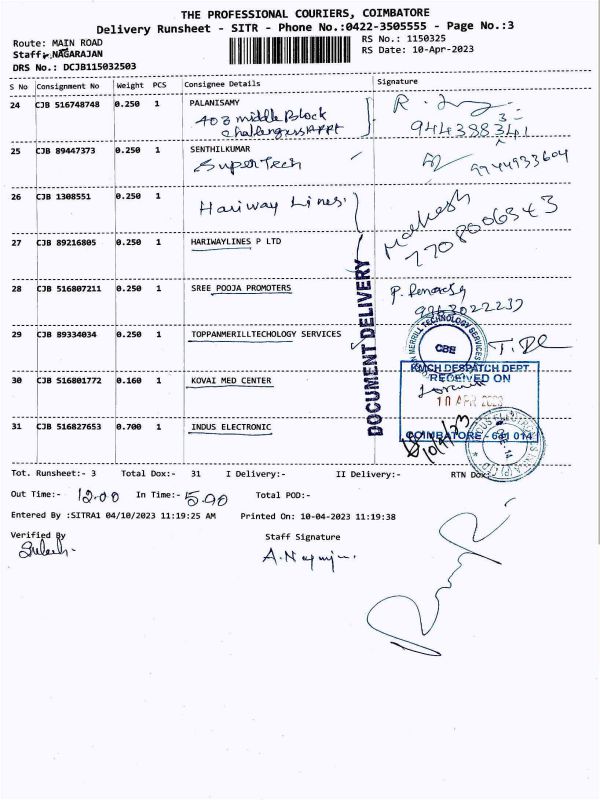 THE PROFESSIONAL COURIERS, COIMBATORE
Delivery Runsheet - SITR - Phone No.:0422-3505555 - Page No.:3
Route: MAIN ROAD
RS No.: 1150325
Staff: NAGARAJAN
RS Date: 10-Apr-2023
DRS No.: DCJB115032503
S No Consignment No Weight PCS Consignee Details Signature
24 CJB 516748748 0.250 1 PALANISAMY
403 middle Block
25 CJB 89447373 0.250 1 SENTHILKUMAR
SuperTech 9744933604
26 CJB 1308551 0.250 1
Hariway Lines.
Mahesh
7708006343
27 CJB 89216805 0.250 1 HARIWAYLINES P LTD
28 CJB 516807211 0.250 1 SREE POOJA PROMOTERS
DOCUMENT DELIVERY
29 CJB 89334034 0.250 1 TOPPANMERILLTECHOLOGY SERVICES
MERRILL TECHNOLOGY SERVICES
CBE
KMCH DESPATCH DEPT.
RECEIVED ON
30 CJB 516801772 0.160 1 KOVAI MED CENTER
10 APR 2023
31 CJB 516827653 0.700 1 INDUS ELECTRONIC
COIMBATORE - 641 014
10/4/23
Tot. Runsheet:- 3 Total Dox:- 31 I Delivery:- II Delivery:- RTN Dox:
Out Time:- 12.00 In Time:- 5.00 Total POD:-
Entered By :SITRA1 04/10/2023 11:19:25 AM Printed On: 10-04-2023 11:19:38
Verified By Staff Signature